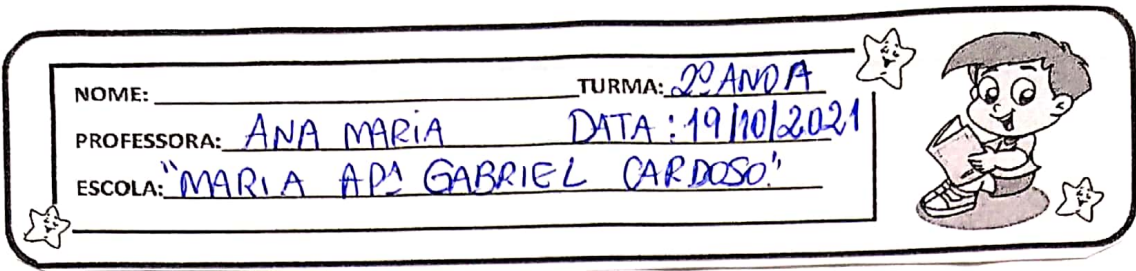 NOME: TURMA: 2º ANO A
PROFESSORA: ANA MARIA DATA: 19/10/2021
ESCOLA: "MARIA APª GABRIEL CARDOSO."